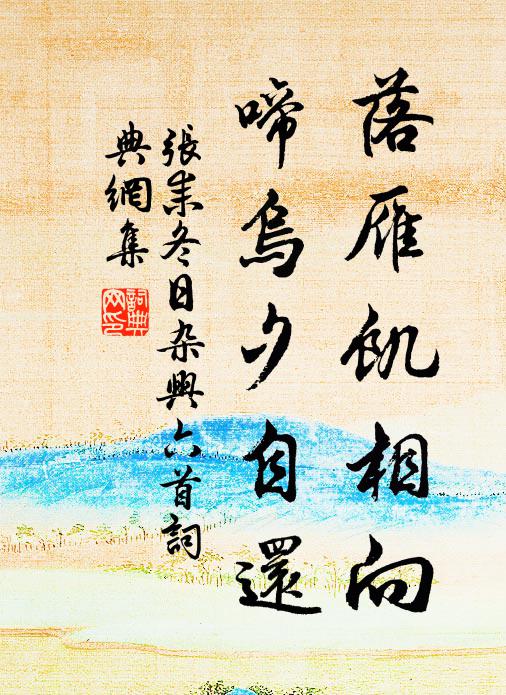 落雁飢相向
啼烏夕自還
張耒冬日杂興六首詞
典網集
詞典
网印